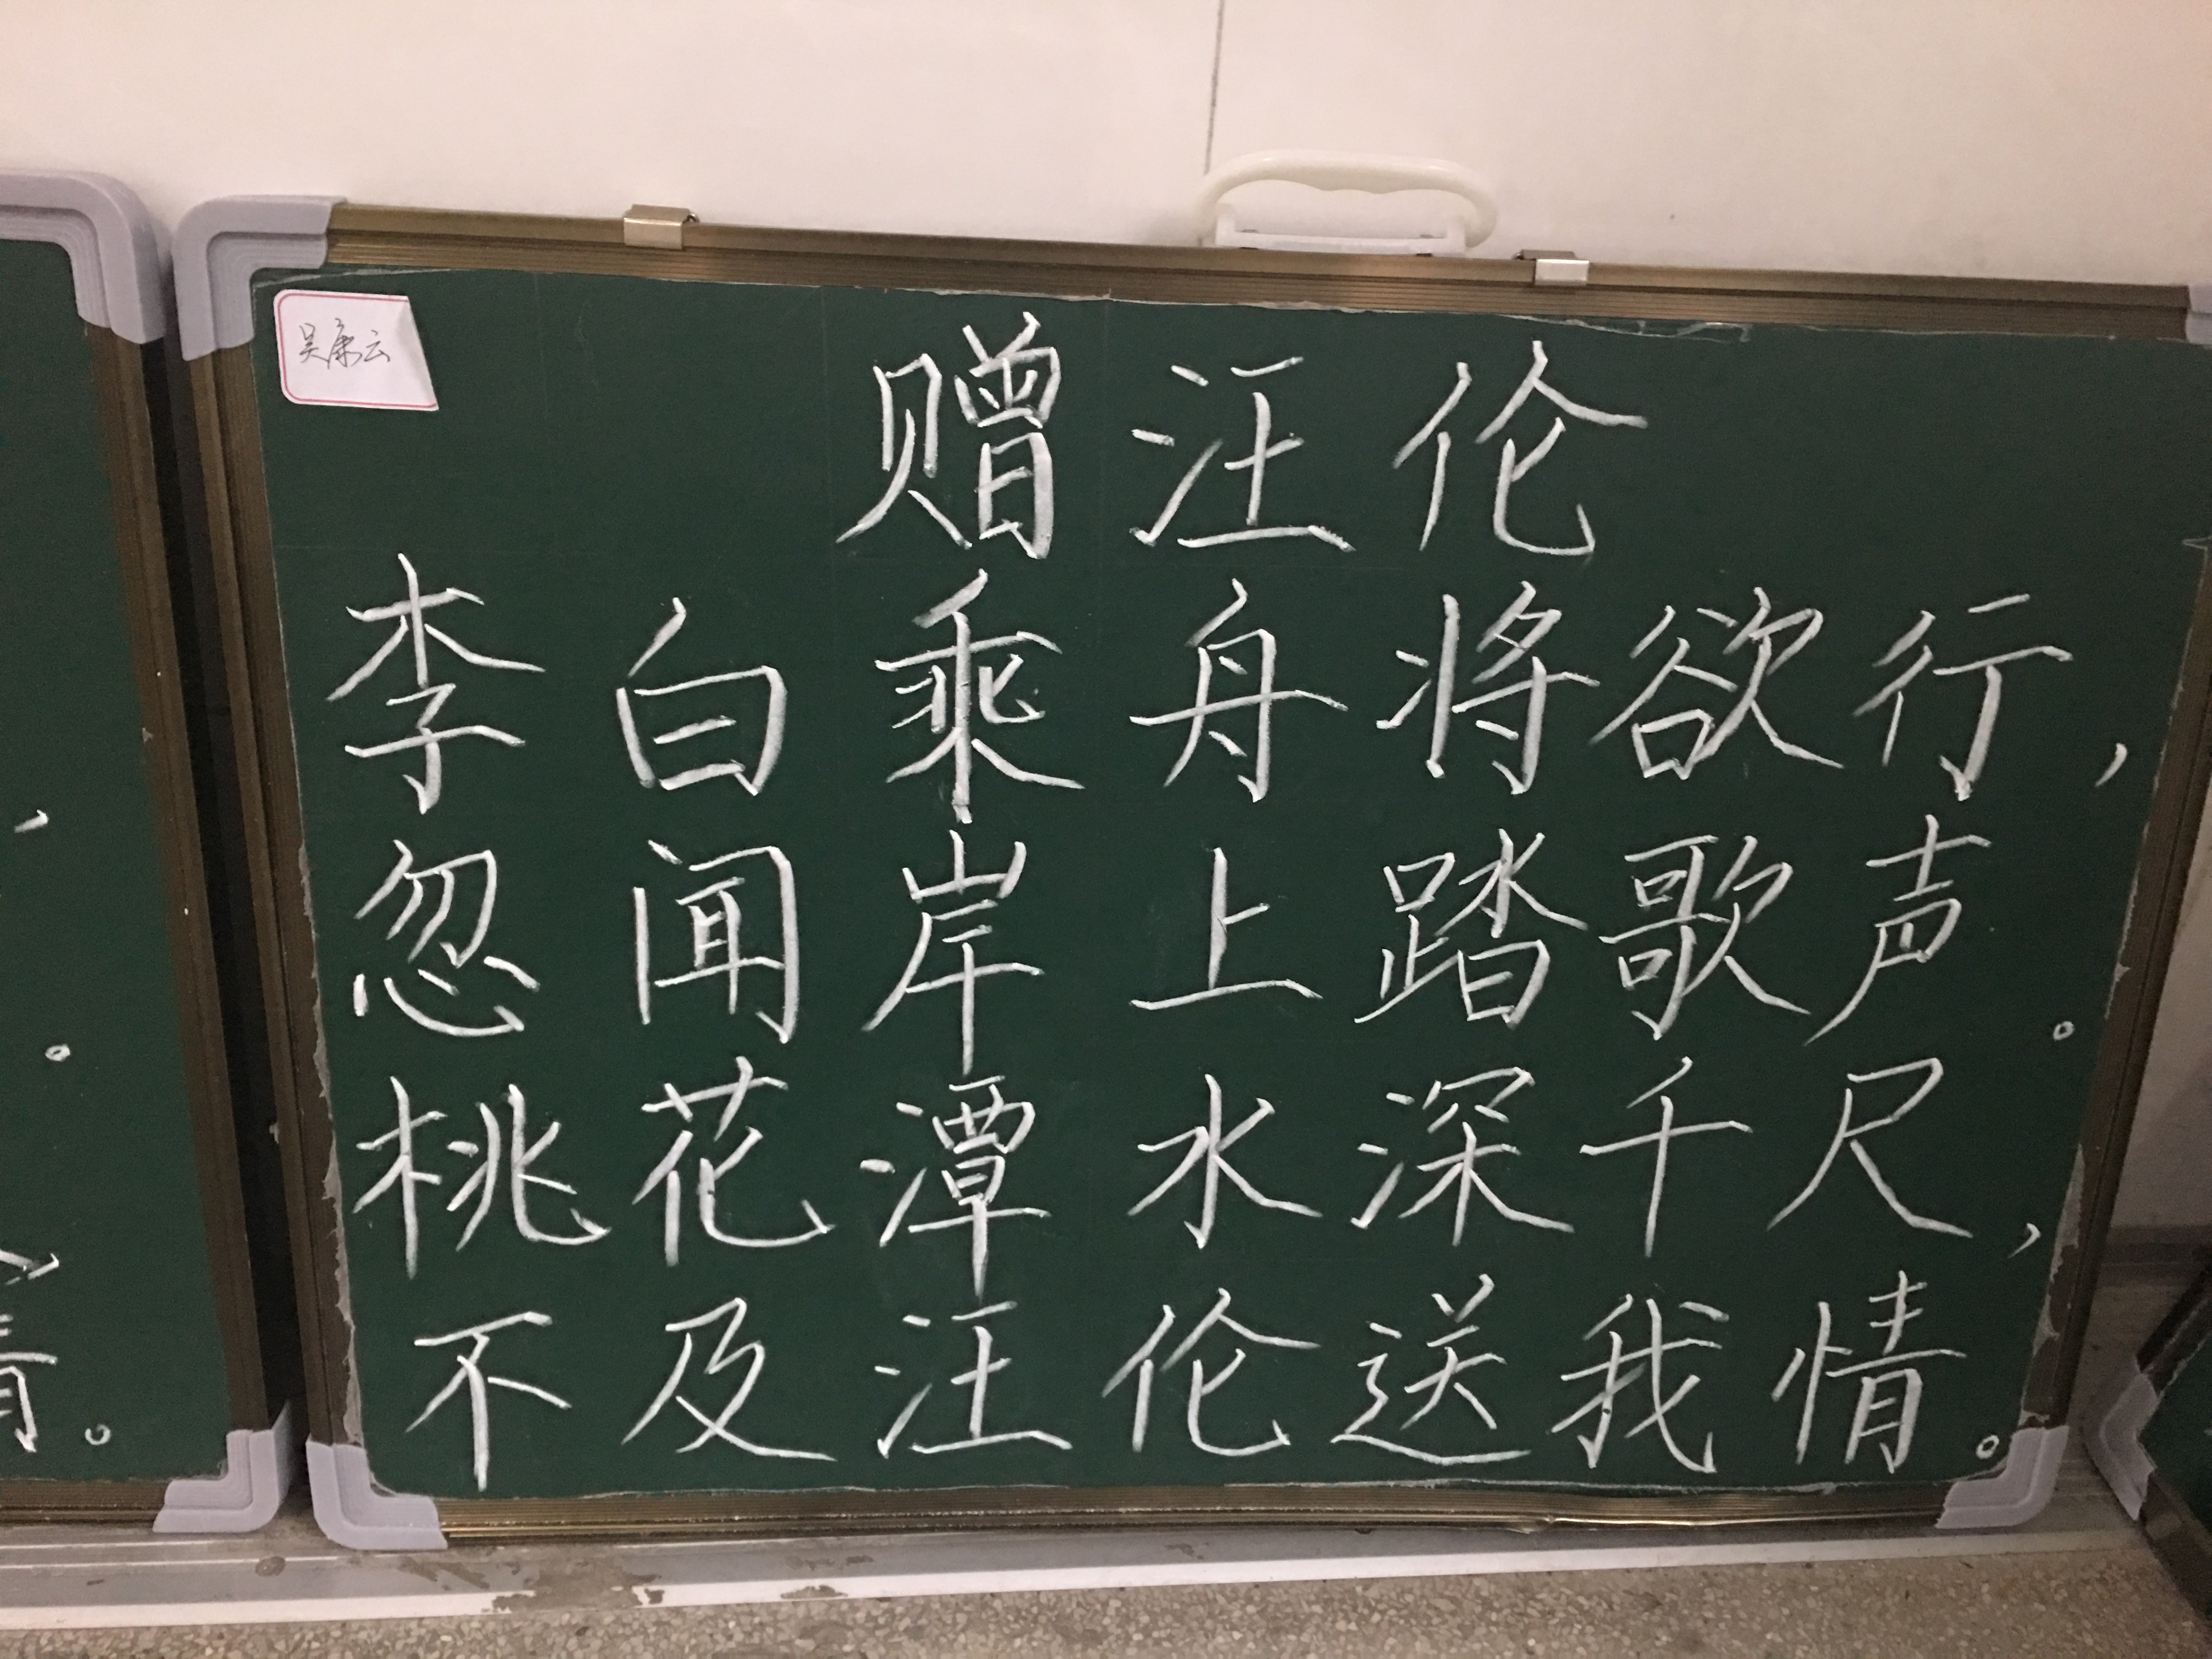 吴康云
赠汪伦
李白乘舟将欲行，
忽闻岸上踏歌声。
桃花潭水深千尺，
不及汪伦送我情。